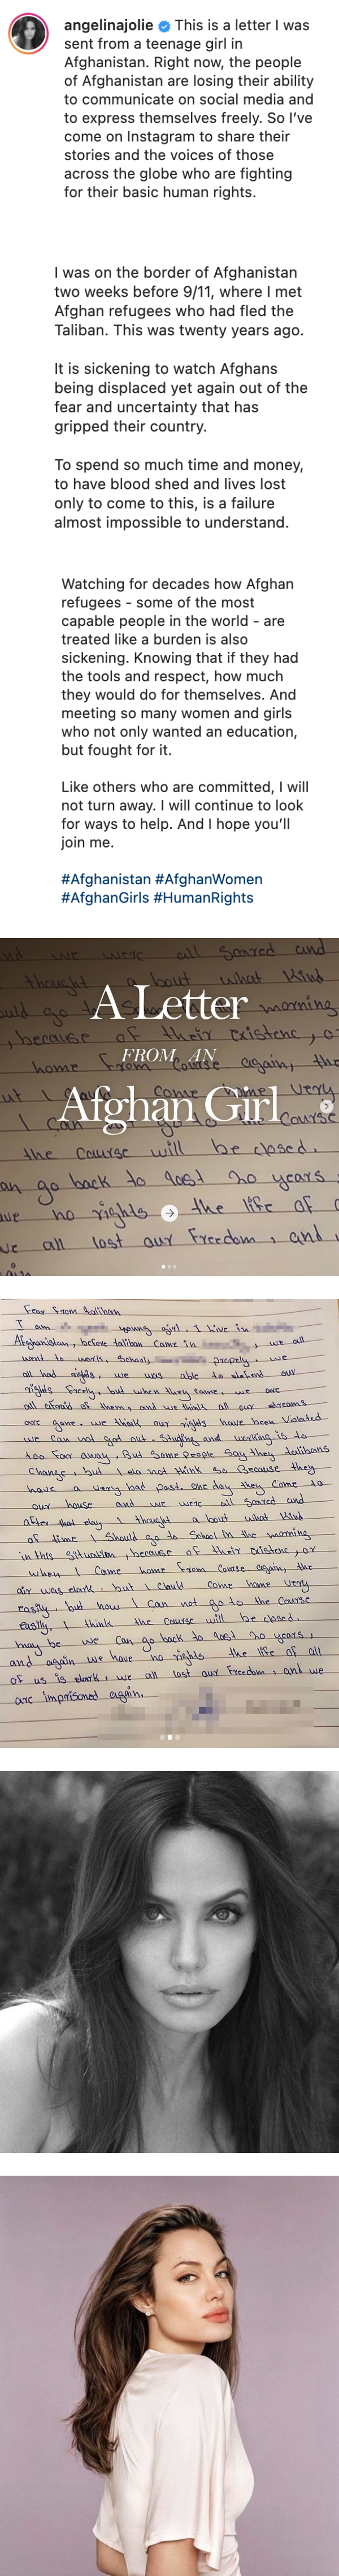 angelinajolie This is a letter I was
sent from a teenage girl in
Afghanistan. Right now, the people
of Afghanistan are losing their ability
to communicate on social media and
to express themselves freely. So I've
come on Instagram to share their
stories and the voices of those
across the globe who are fighting
for their basic human rights.
I was on the border of Afghanistan
two weeks before 9/11, where I met
Afghan refugees who had fled the
Taliban. This was twenty years ago.
It is sickening to watch Afghans
being displaced yet again out of the
fear and uncertainty that has
gripped their country.
To spend so much time and money,
to have blood shed and lives lost
only to come to this, is a failure
almost impossible to understand.
Watching for decades how Afghan
refugees - some of the most
capable people in the world - are
treated like a burden is also
sickening. Knowing that if they had
the tools and respect, how much
they would do for themselves. And
meeting so many women and girls
who not only wanted an education,
but fought for it.
Like others who are committed, I will
not turn away. I will continue to look
for ways to help. And I hope you'll
join me.
#Afghanistan #AfghanWomen
#AfghanGirls #HumanRights
and we were all scared and
thought about what kind
go to school morning
, because of their existenc, o
home from course again, the
ut I could come home very
I can the course
the course will be closed.
an go back to last 20 years
no rights the life of
all lost our freedom, and
A Letter
FROM AN
Afghan Girl
Fear from taliban
I am young girl. I live in
Afghanistan, before taliban came in , we all
went to work, school, properly. we
all had rights, we was able to defend our
rights freely, but when they came, we are
all afraid of them, and we think all our dreams
are gone. we think our rights have been violated
we can not got out. Studing and working is to
too far away. But some people say they talibans
change, but I do not think so Because they
have a very bad past. one day they come to
our house and we were all scared and
after that day I thought a bout what kind
of time I should go to school in the morning
in this situation, because of their existenc, or
when I came home from course again, the
air was dark. but I could come home very
easily, but now I can not go to the course
easily. I think the course will be closed.
may be we can go back to last 20 years,
and again we have no rights the life of all
of us is dark, we all lost our freedom, and we
are imprisoned again.